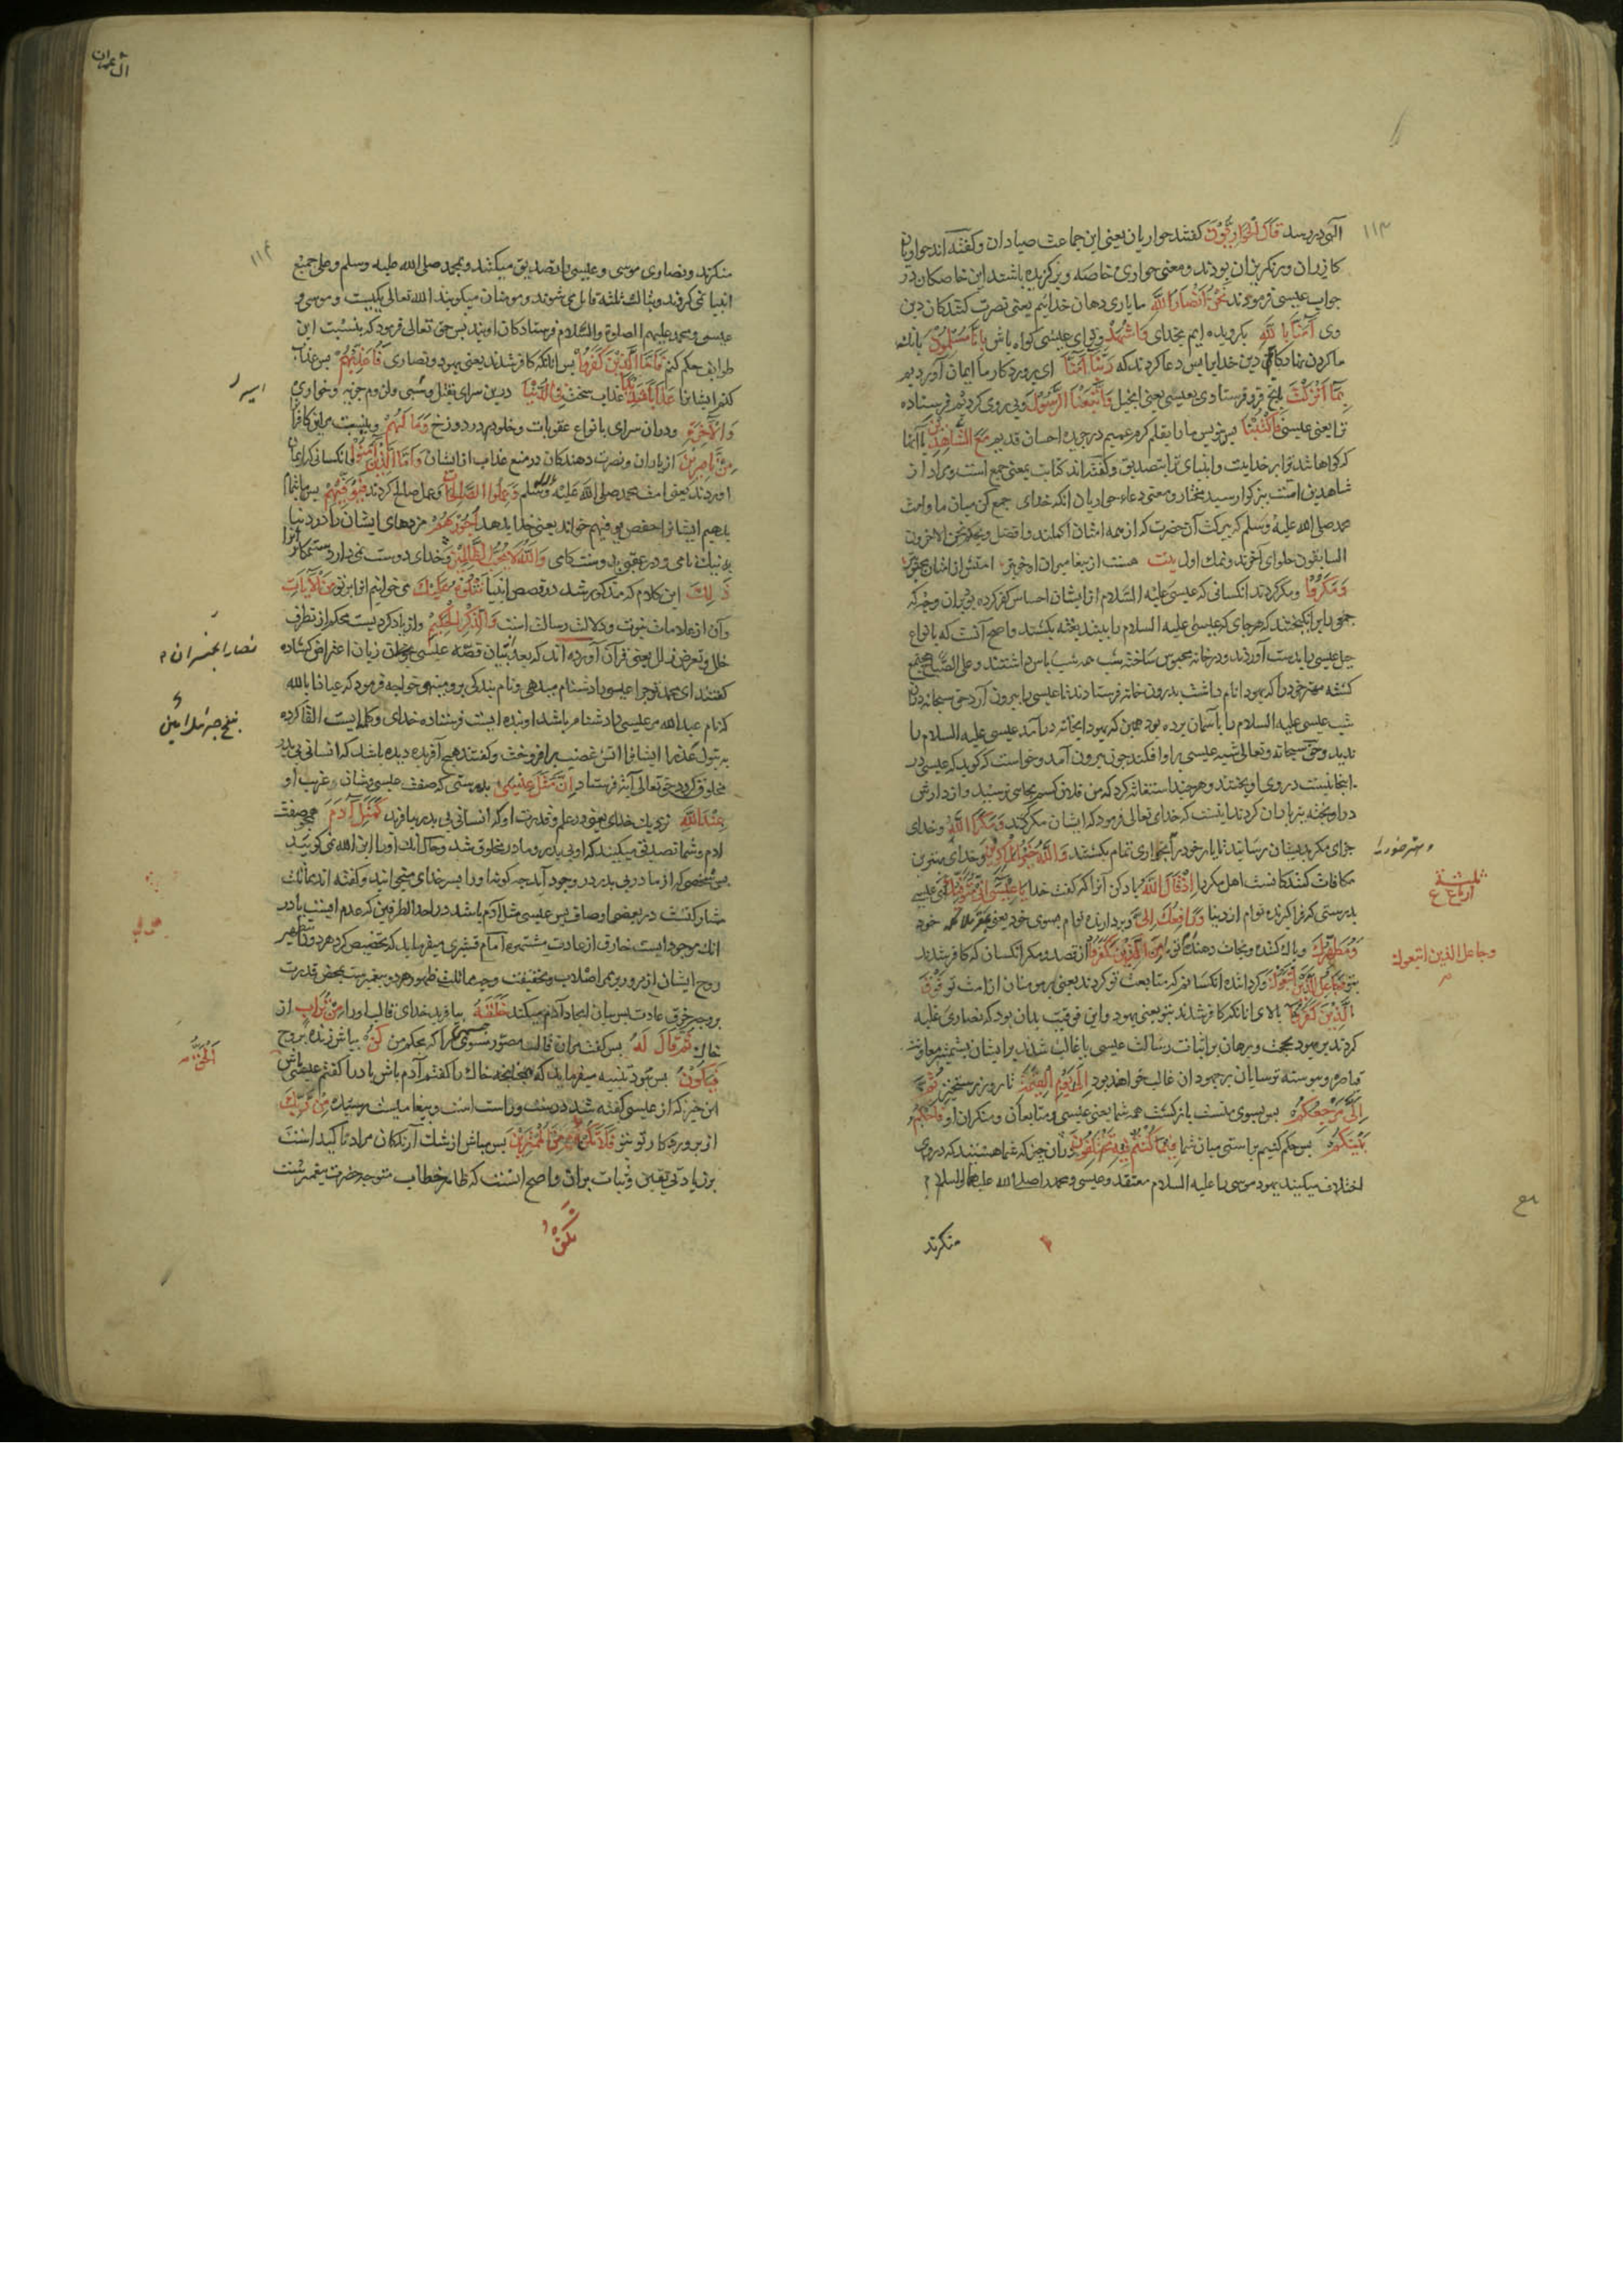 ۱۱۳
آلهی در رسد قَالَ الْحَوَارِیُّونَ کفتند حواریان یعنی این جماعت صیادان و کفته اند حواریان
کازران ورنکریزان بودند ومعنی حواری خاصه وبرکزیده باشند این خاصکان در
جواب عیسی فرمودند نَحْنُ اَنْصَارُ اللّٰهِ ما یاری دهان خدائیم یعنی نصرت کنندکان دین
وی آمَنَّا بِاللّٰهِ بکرویده ایم بخدای وَاشْهَدْ وتو ای عیسی کواه باش بِاَنَّا مُسْلِمُونَ بانک
ما کردن نهادکانیم دین خدایرا پس دعا کردند که رَبَّنَا آمَنَّا ای پروردکار ما ایمان آوردیم
بِمَا اَنْزَلْتَ بانچ فرو فرستادی بعیسی یعنی انجیل وَاتَّبَعْنَا الرَّسُولَ وپی روی کردیم فرستاده
ترا یعنی عیسی فَاکْتُبْنَا پس بنویس مارا بقلم کرم عمیم در جریده احسان قدیم مَعَ الشَّاهِدِینَ با آنها
که کواها شدند برخدایت وانبیای ترا بتصدیق وکفته اند کتابت بمعنی جمع است ومراد از
شاهدین امت بزرکوار سید مختار ومعنی دعاء حواریان انکه خدای جمع کن میان ما وامت
محمد صلی الله علیه وسلم که ببرکت آن حضرت که از همه امتان اکملند وافضل وبحکم نحن الآخرون
السابقون حلوای آخرند ونمک اول بیت هست از پیغامبران او خوبتر امتش از امتان محبوبتر
وَمَکَرُوا ومکر کردند انکسانی که عیسی علیه السلام از ایشان احساس کفر کرده بود بران وجه که
جمعی را برانکیختند که هرجای که عیسی علیه السلام را بینند بغته بکشند واصح آنست که بانواع
حیل عیسی را بدست آوردند ودر خانه محبوس ساخته شب همه شب پاس داشتند وعلی الصباح مجتمع
کشته مهتر خود را که یهودا نام داشت بدرون خانه فرستادند تا عیسی را بیرون آرد حق سبحانه دران
شب عیسی علیه السلام را باسمان برده بود همین که یهودا بخانه درآمد عیسی علیه السلام را
ندید وحق سبحانه وتعالی شبه عیسی را براو افکند چون بیرون آمد وخواست که کوید که عیسی در
اینجا نیست در وی اویختند وهرچند استغاثه کرد که من فلان کسم بجایی نرسید واز دارش
دراویخته تیرباران کردند اینست که خدای تعالی فرمود که ایشان مکر کردند وَمَکَرَ اللّٰهُ وخدای
جزای مکر بدیشان رسانید تا یار خود را بخواری تمام بکشتند وَاللّٰهُ خَیْرُ الْمَاکِرِینَ وخدای بهترین
مکافات کنندکانست اهل مکر را اِذْ قَالَ اللّٰهُ یاد کن آنرا که کفت خدا یَا عِیسَی اِنِّی مُتَوَفِّیکَ ای عیسی
بدرستی که فراکیرنده توام از دنیا وَرَافِعُکَ اِلَیَّ وبردارنده توام بسوی خود یعنی بمقر ملائکه خود
وَمُطَهِّرُکَ وپاک کننده ونجات دهنده توام مِنَ الَّذِینَ کَفَرُوا از قصد ومکر انکسان که کافر شدند
بتو وَجَاعِلُ الَّذِینَ اتَّبَعُوکَ وکرداننده انکسانم که متابعت تو کردند یعنی مومنان از امت تو فَوْقَ
الَّذِینَ کَفَرُوا بالای انانکه کافر شدند بتو یعنی یهود واین فوقیت بدان بود که نصاری غلبه
کردند بر یهود بحجت وبرهان بر اثبات رسالت عیسی یا غالب شدند بر ایشان بشمشیر معاونت
قیاصره وپیوسته ترسایان بر جهودان غالب خواهند بود اِلَی یَوْمِ الْقِیٰمَةِ تا روز رستخیز ثُمَّ
اِلَیَّ مَرْجِعُکُمْ پس بسوی منست بازکشت همه شما یعنی عیسی ومتابعان ومنکران او فَاَحْکُمُ
بَیْنَکُمْ پس حکم کنیم براستی میان شما فِیمَا کُنْتُمْ فِیهِ تَخْتَلِفُونَ دران چیز که شما هستید که دروی
اختلاف میکنید یهود موسی را علیه السلام معتقد وعیسی ومحمد را صلی الله علیهما والسلام
منکرند
ثلثة ارباع
وجاعل الذین اتبعوک
آل عمران
۱۱۴
منکرند ونصاری موسی وعیسی را تصدیق میکنند وبمحمد صلی الله علیه وسلم وعلی جمیع
انبیا نمی کروند وبثالث ثلثه قایل می شوند ومومنان میکویند الله تعالی یکیست وموسی و
عیسی ومحمد علیهم الصلوة والسلام فرستادکان اویند پس حق تعالی فرمود که بنسبت این
طوایف حکم کنم فَاَمَّا الَّذِینَ کَفَرُوا پس انانکه کافر شدند یعنی یهود ونصاری فَاُعَذِّبُهُمْ پس عذاب
کنم ایشانرا عَذَابًا شَدِیدًا عذاب سخت فِی الدُّنْیَا درین سرای بقتل وسبی ولزوم جزیه وخواری
وَالْآخِرَةِ ودران سرای بانواع عقوبات وخلود در دوزخ وَمَا لَهُمْ ونیست مراین کافرانرا
مِنْ نَاصِرِینَ از یاران ونصرت دهندکان در منع عذاب از ایشان وَاَمَّا الَّذِینَ آمَنُوا وانکسانی که ایمان
آوردند یعنی امت محمد صلی الله علیه وسلم وَعَمِلُوا الصَّالِحَاتِ وعمل صالح کردند فَیُوَفِّیهِمْ پس ما تمام
بدهیم ایشانرا حفص یوفیهم خواند یعنی خدا بدهد اُجُورَهُمْ مزدهای ایشان را در دنیا
به نیک نامی ودر عقبی بدوستکامی وَاللّٰهُ لَا یُحِبُّ الظَّالِمِینَ وخدای دوست نمی دارد ستمکارانرا
ذٰلِکَ این کلام که مذکور شد در قصص انبیا نَتْلُوهُ عَلَیْکَ می خوانیم انرا بر تو مِنَ الْآیَاتِ
وآن از علامات نبوت ودلالت رسالت است وَالذِّکْرِ الْحَکِیمِ واز یادکردیست محکم از تطرق
خلل وتعرض زلل یعنی قرآن آورده اند که بعد از بیان قصه عیسی زبان اعتراض کشاده
کفتند ای محمد چرا عیسی را دشنام میدهی ونام بندکی برو مینهی خواجه فرمود که عیاذا بالله
که نام عبدالله مر عیسی را دشنام باشد او بنده ایست فرستاده خدای وکلمه ایست القا کرده
به بتول عذرا ایشانرا اتش غضب برافروخت وکفتند هیچ آفریده دیده باشد که انسانی بی پدر
مخلوق کردد حق تعالی آیة فرستاد اِنَّ مَثَلَ عِیسٰی بدرستی که صفت عیسی وشان غریب او
عِنْدَ اللّٰهِ نزدیک خدای یعنی در علم وقدرت او که انسانی بی پدر بیافریند کَمَثَلِ آدَمَ همچو صفت
آدم وشما تصدیق میکنید که او بی پدر ومادر مخلوق شد وحال انک او را ابن الله نمی کویید
پس شخصی که از مادر بی پدر در وجود آید چه کونه او را پسر خدای میخوانید وکفته اند مماثلت
مشارکتست در بعضی اوصاف پس عیسی مثل آدم باشد در احد الطرفین که عدم ابست با در
انک موجودیست خارق از عادت مستمره امام قشیری میفرماید که تخصیص کرد هر دو را بتطهیر
روح ایشان از مرور بر اصلاب وبحقیقت وجه مماثلت ظهور هر دو پیغمبرست بمحض قدرت
بر وجه خرق عادت پس بیان ایجاد آدم میکند خَلَقَهُ بیافرید خدای قالب او را مِنْ تُرَابٍ از
خاک ثُمَّ قَالَ لَهُ پس کفت مران قالب مصور را که بحکم من کُنْ باش زنده بروح
فَیَکُونُ پس بود تنبیه میفرماید که همچنانچه خاک را کفتم آدم باش بادرا کفتم عیسی باش
این خبر که از عیسی کفته شد درست وراست است وپیغامیست رسیده مِنْ رَبِّکَ
از پروردکار تو بتو فَلَا تَکُنْ مِنَ الْمُمْتَرِینَ پس مباش از شک آرندکان مراد تاکید است
بزیادتی یقین وثبات بران واصح انست که ظاهر خطاب متوجه حضرت پیغمبرست
اسیر
نصارا نجران
اَلْحَقُّ